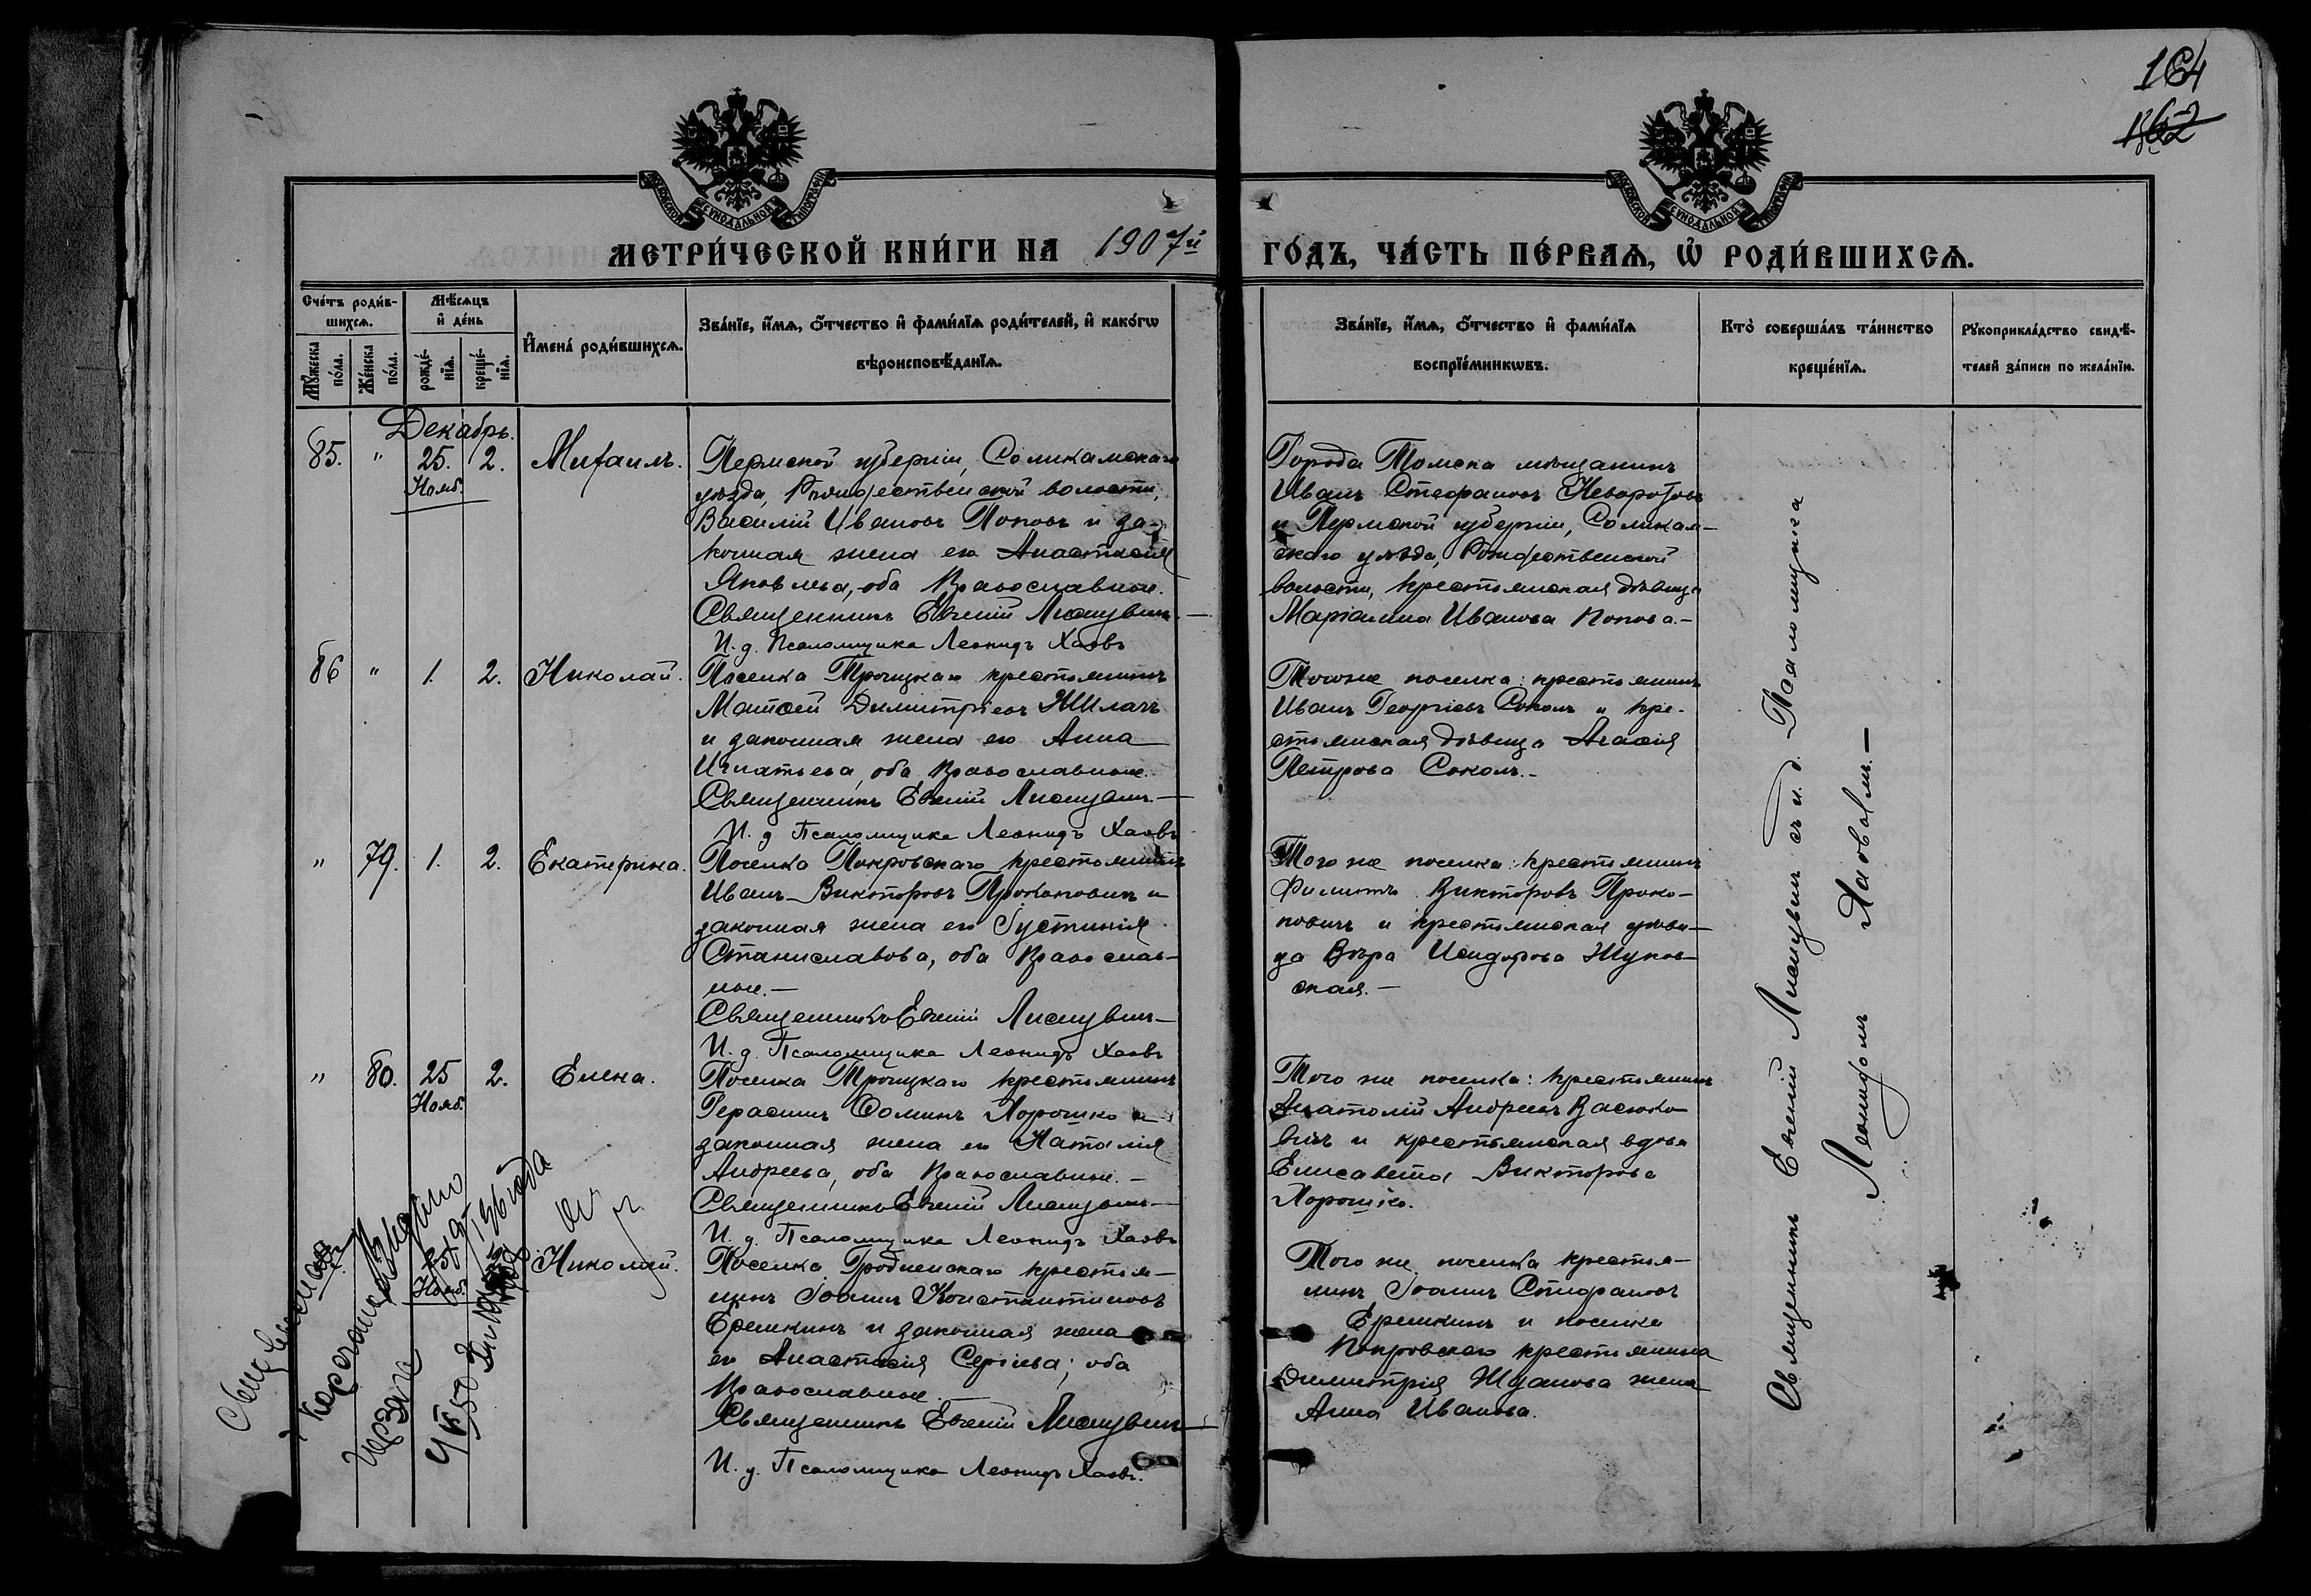 164
162
МОСКОВСКОЙ СѴНОДАЛЬНОЙ ТИПОГРАФІИ
МОСКОВСКОЙ СѴНОДАЛЬНОЙ ТИПОГРАФІИ
МЕТРИ́ЧЕСКОЙ КНИ́ГИ НА 1907й
ГО́ДЪ, ЧА́СТЬ ПЕ́РВАѦ, Ѿ РОДИ́ВШИХСѦ.
Сче́тъ роди́в-
шихсѧ.
Мꙋ́жеска по́ла.
Же́нска по́ла.
Мѣ́сѧцъ и҆ де́нь
рожде́-нїѧ.
креще́-нїѧ.
И҆мена̀ роди́вшихсѧ.
Зва́нїе, и҆́мѧ, ѻ҆́тчество и҆ фами́лїѧ роди́телей, и҆ како́гѡ
вѣроисповѣ́данїѧ.
Зва́нїе, и҆́мѧ, ѻ҆́тчество и҆ фами́лїѧ
воспрїе́мникѡвъ.
Кто̀ соверша́лъ та́инство
креще́нїѧ.
Рꙋкоприкла́дство свидѣ́-
телей за́писи по жела́нїю.
Декабрь.
85. " 25. Нояб. 2. Михаилъ.
Пермской губерніи, Соликамскаго
уѣзда, Рождественской волости,
Василій Ивановъ Поповъ и за-
конная жена его Анастасія
Яковлева, оба Православные.
Священникъ Евгеній
И. д. Псаломщика Леонидъ
Города Томска мѣщанинъ
Иванъ Стефановъ
и Пермской губерніи, Соликам-
скаго уѣзда, Рождественской
волости, крестьянская дѣвица
Маріанна Иванова Попова.-
86 " 1. 2. Николай.
Поселка Троицкаго крестьянинъ
Матѳей Димитріевъ
и законная жена его Анна
Игнатьева, оба Православные.
Священникъ Евгеній
И. д Псаломщика Леонидъ
Тогоже поселка: крестьянинъ
Иванъ Георгіевъ Соколъ и кре-
стьянская дѣвица Агафія
Петрова Соколъ.-
" 79. 1. 2. Екатерина.
Поселка Покровскаго крестьянинъ
Иванъ Викторовъ Прокоповичъ и
законная жена его Іустинія
Станиславова, оба Православ-
ные.-
Священникъ Евгеній
И. д. Псаломщика Леонидъ
Того же поселка: крестьянинъ
Филиппъ Викторовъ Проко-
повичъ и крестьянская
Вѣра Исидорова Жуков-
ская.-
" 80. 25 Нояб. 2. Елена.
Поселка Троицкаго крестьянинъ
Герасимъ Ѳоминъ Хорошко и
законная жена его Наталія
Андреева, оба Православные.-
Священникъ Евгеній
И. д. Псаломщика Леонидъ
Того же поселка: крестьянинъ
Анатолій Андреевъ Васюко-
вичъ и крестьянская вдова
Елисавета Викторова
Хорошко.
Нояб. Николай.
Поселка Гродненскаго крестья-
нинъ Іоаннъ Константиновъ
Еремкинъ и законная жена
его Анастасія Сергіева; оба
Православные.-
Священникъ Евгеній
И. д. Псаломщика Леонидъ
Того же поселка крестья-
нинъ Іоаннъ Стефановъ
Еремкинъ и поселка
Покровскаго крестьянина
Димитрія Жданова жена
Анна Иванова.
Священникъ Евгеній съ и. д. Псаломщика
Леонидомъ